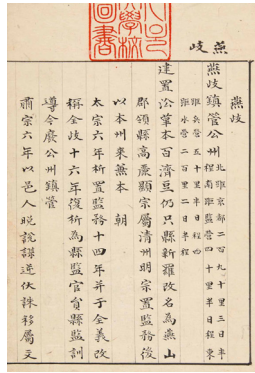 燕岐
燕岐
燕岐鎮管公州
北距京都二百九十里三日半
程南距監營四十里半日程東
距兵營五十里半日程四
距水營二百里二日半程
建置沿革本百濟豆仍只縣新羅改名為燕山
郡領縣高麗顯宗屬清州明宗置監務後
以本州來兼本 朝
太宗六年析置監務十四年并于全義改
稱全岐十六年復析為縣監官貟縣監訓
導今廢公州鎮管
肅宗六年以邑人晚說謀逆伏誅移屬文